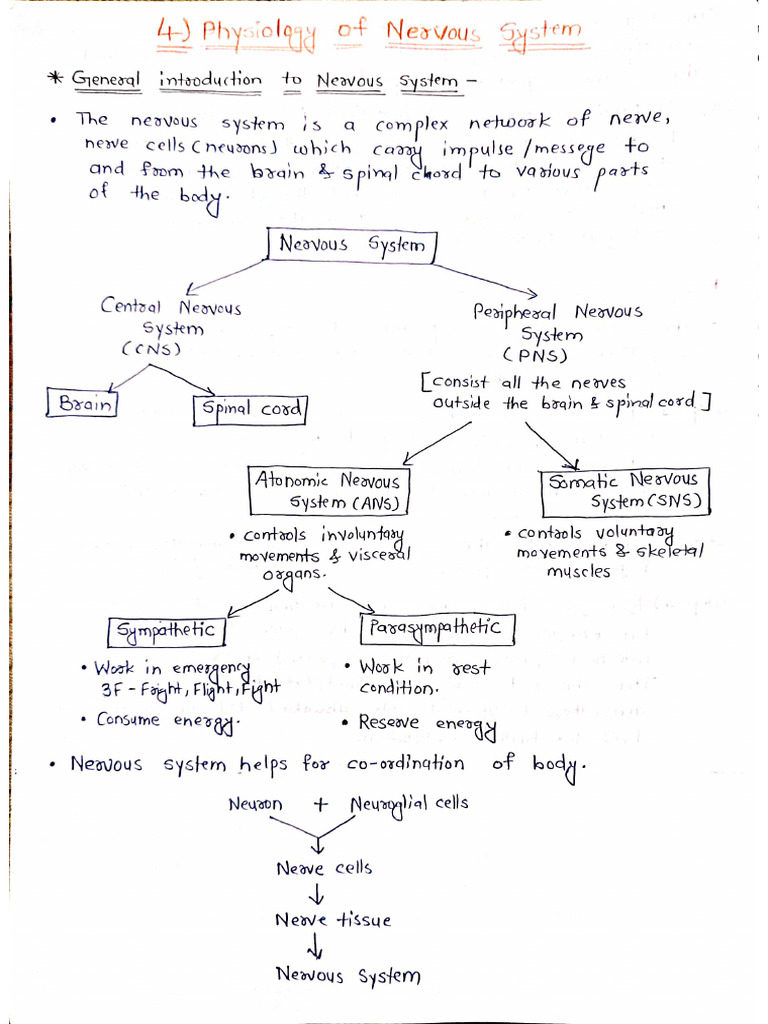 4-) Physiology of Nervous System
* General introduction to Nervous System -
• The nervous system is a complex network of nerve,
nerve cells (neurons) which carry impulse/messege to
and from the brain & spinal chord to various parts
of the body.
Nervous System
Central Nervous
System
(CNS)
Peripheral Nervous
System
(PNS)
[consist all the nerves
outside the brain & spinal cord]
Brain
Spinal cord
Atonomic Nervous
System (ANS)
• controls involuntary
movements & visceral
organs.
Somatic Nervous
System (SNS)
• controls voluntary
movements & skeletal
muscles
Sympathetic
• Work in emergency
3F - Fright, Flight, Fight
• Consume energy.
Parasympathetic
• Work in rest
condition.
• Reserve energy
• Nervous system helps for co-ordination of body.
Neuron + Neuroglial cells
Nerve cells
Nerve tissue
Nervous System